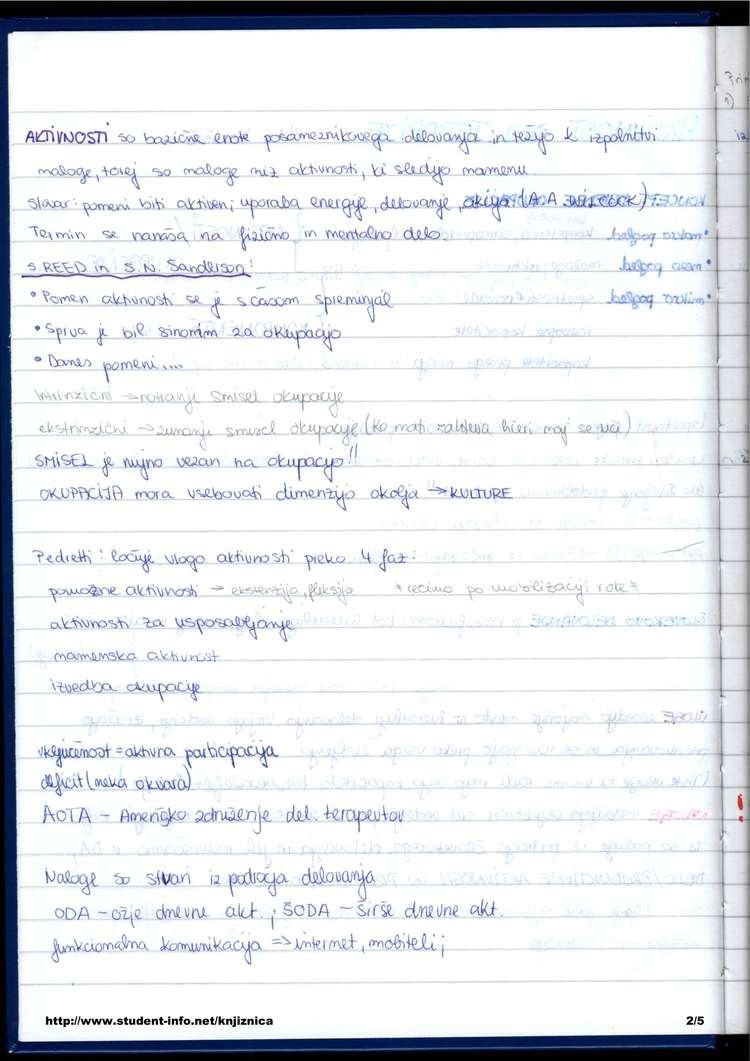 AKTIVNOSTI so bazične enote posameznikovega delovanja in težijo k izpolnitvi
naloge, torej so naloge niz aktivnosti, ki sledijo namenu.
Slovar: pomeni biti aktiven; uporaba energije, delovanje, akcija (A.A. WILCOCK)
Termin se nanaša na fizično in mentalno delo.
S. REED in S.N. Sanderson:
• Pomen aktivnosti se je s časom spreminjal
• Sprva je bil sinonim za okupacijo
• Danes pomeni....
intrinzični → notranji smisel okupacije
ekstrinzični → zunanji smisel okupacije (ko mati zahteva hčeri naj se uči)
SMISEL je nujno vezan na okupacijo!!
OKUPACIJA mora vsebovati dimenzijo okolja → KULTURE
Pedretti: ločuje vlogo aktivnosti preko 4 faz:
pomožne aktivnosti → ekstenzija, fleksija * recimo po mobilizaciji roke *
aktivnosti za usposabljanje
namenska aktivnost
izvedba okupacije
vključenost = aktivna participacija
deficit (neka okvara)
AOTA – Ameriško združenje del. terapevtov
Naloge so stvari iz področja delovanja
ODA – ožje dnevne akt.; ŠODA – širše dnevne akt.
funkcionalna komunikacija => internet, mobiteli;
http://www.student-info.net/knjiznica 2/5